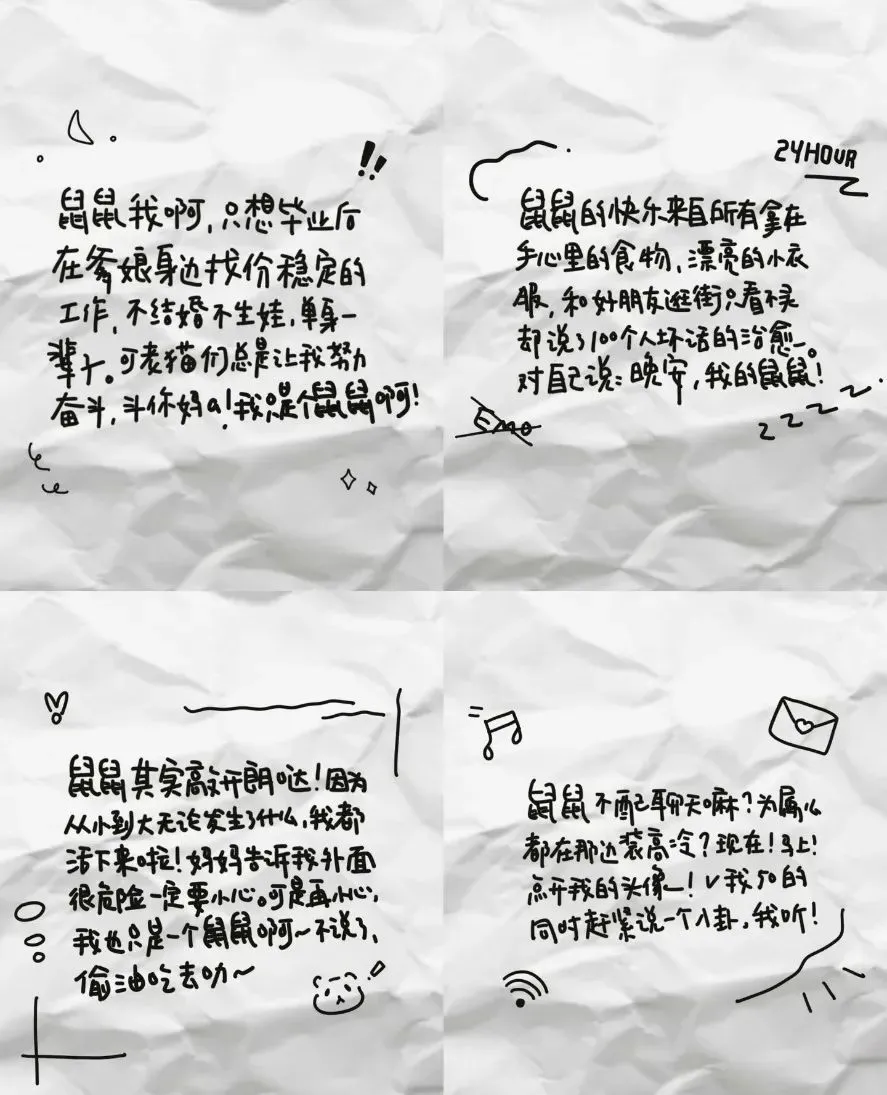 鼠鼠我啊，只想毕业后
在爹娘身边找份稳定的
工作，不结婚不生娃，单身一
辈子。可老猫们总是让我努力
奋斗，斗你妈a！我只是个鼠鼠啊！
24HOUR
鼠鼠的快乐来自所有拿在
手心里的食物，漂亮的小衣
服，和好朋友逛街只看不买
却说了100个人坏话的治愈。
对自己说：晚安，我的鼠鼠！
Emo
z z z z
鼠鼠其实敲开朗哒！因为
从小到大无论发生了什么，我都
活下来啦！妈妈告诉我外面
很危险一定要小心。可是再小心，
我也只是一个鼠鼠啊～不说了，
偷油吃去叻～
鼠鼠不配聊天嘛？为属么
都在那边装高冷？现在！马上！
点开我的头像—！v我50的
同时赶紧说一个八卦，我听！